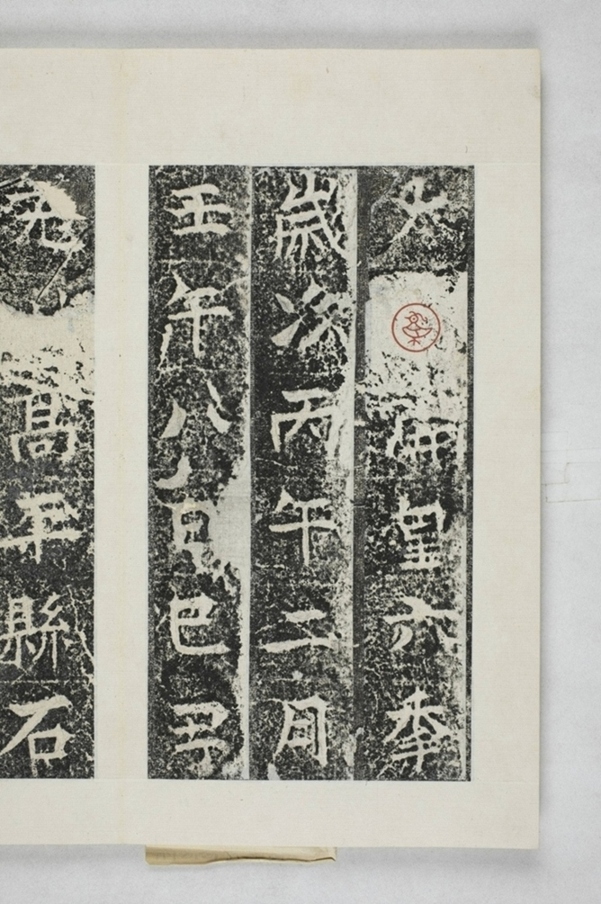 大開皇六年
歲次丙午二月
壬午八日己丑
兗高平縣石